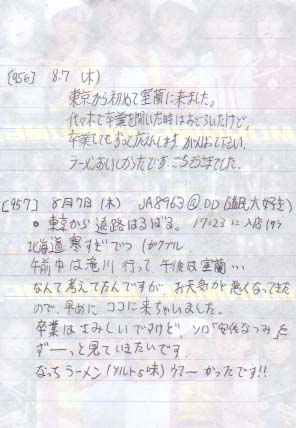 [956] 8.7 (木)
東京から初めて室蘭に来ました。
代々木で卒業を聞いた時はおどろいたけど、
卒業してもずっと応えんします。がんばって下さい。
ラーメンおいしかったです。ごちそう様でした。
[957] 8月7日 (木) JA8963@DD (道民大好き)
東京から遠路はるばる。17:23に入店
北海道寒すぎでつ
午前中は滝川行って午後は室蘭…
なんて考えてたんですが、お天気が悪くなってきた
ので、早めにココに来ちゃいました。
卒業はさみしいですけど、ソロ「安倍なつみ」を
ずーっと見ていきたいです。
なっちラーメン(ソルト5味) ウマーかったです!!